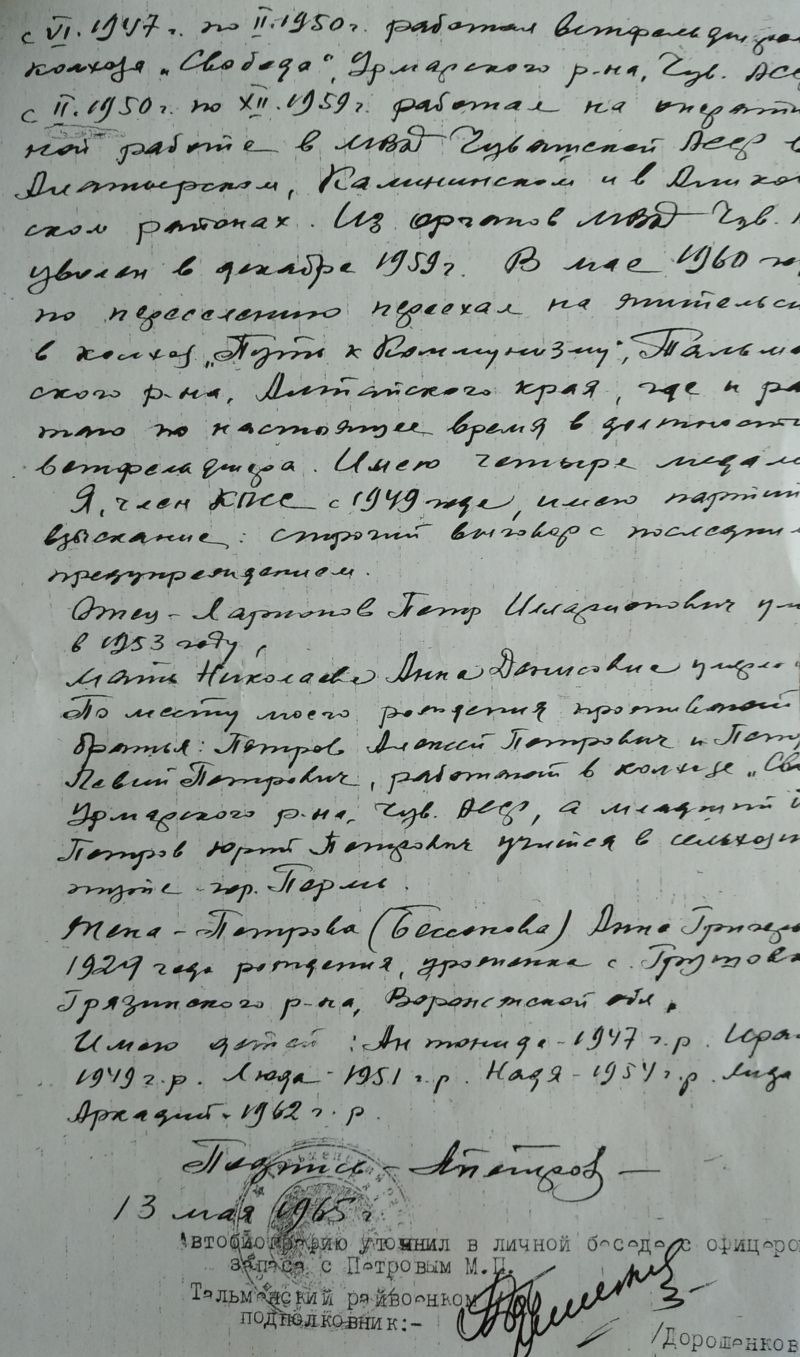 с VI.1947г. по II.1950г. работал ветфельдшером
колхоза „Свобода", Урмарского р-на, Чув. АССР
с II.1950г. по XII.1959г. работал на оператив
ной работе в МВД Чувашской АССР в
Алатырском, Калининском и в Аликов
ском районах. Из органов МВД Чув.
уволен в декабре 1959г. В мае 1960
по переселению переехал на жительс
в колхоз „Путь к Коммунизму", Тальмен
ского р-на, Алтайского края, где и ра
таю по настоящее время в должност
ветфельдшера. Имею четыре медал
Я, член КПСС с 1949 года, имею партий
взыскание: строгий выговор с последним
предупреждением.
Отец - Ларионов Петр Илларионович ум
в 1953 году,
мать Николаева Анна Денисовна умерла
По месту моего рождения проживают
братья: Петров Алексей Петрович и Петр
Петрович, работают в колхозе „Св
Урмарского р-на, Чув. АССР, а младший
Петров Юрий Петрович учится в сельхозин
ституте гор. Пермь.
Жена - Петрова (Бессонова) Анна Григор
1924 года рождения, уроженка с.
Грязинского р-на, Воронежской обл.
Имею детей: Антонида - 1947 г.р. Ира
1949 г.р. Люда - 1951 г.р. Надя - 1954 г.р. Лида
Аркадий - 1962 г.р.
Подпись - АПетров -
13 мая 1965 г.
Автобиографию уточнил в личной беседе с офицером
запаса с Петровым М.П.
Тальменский райвоенком
подполковник:-
/Дорошенков